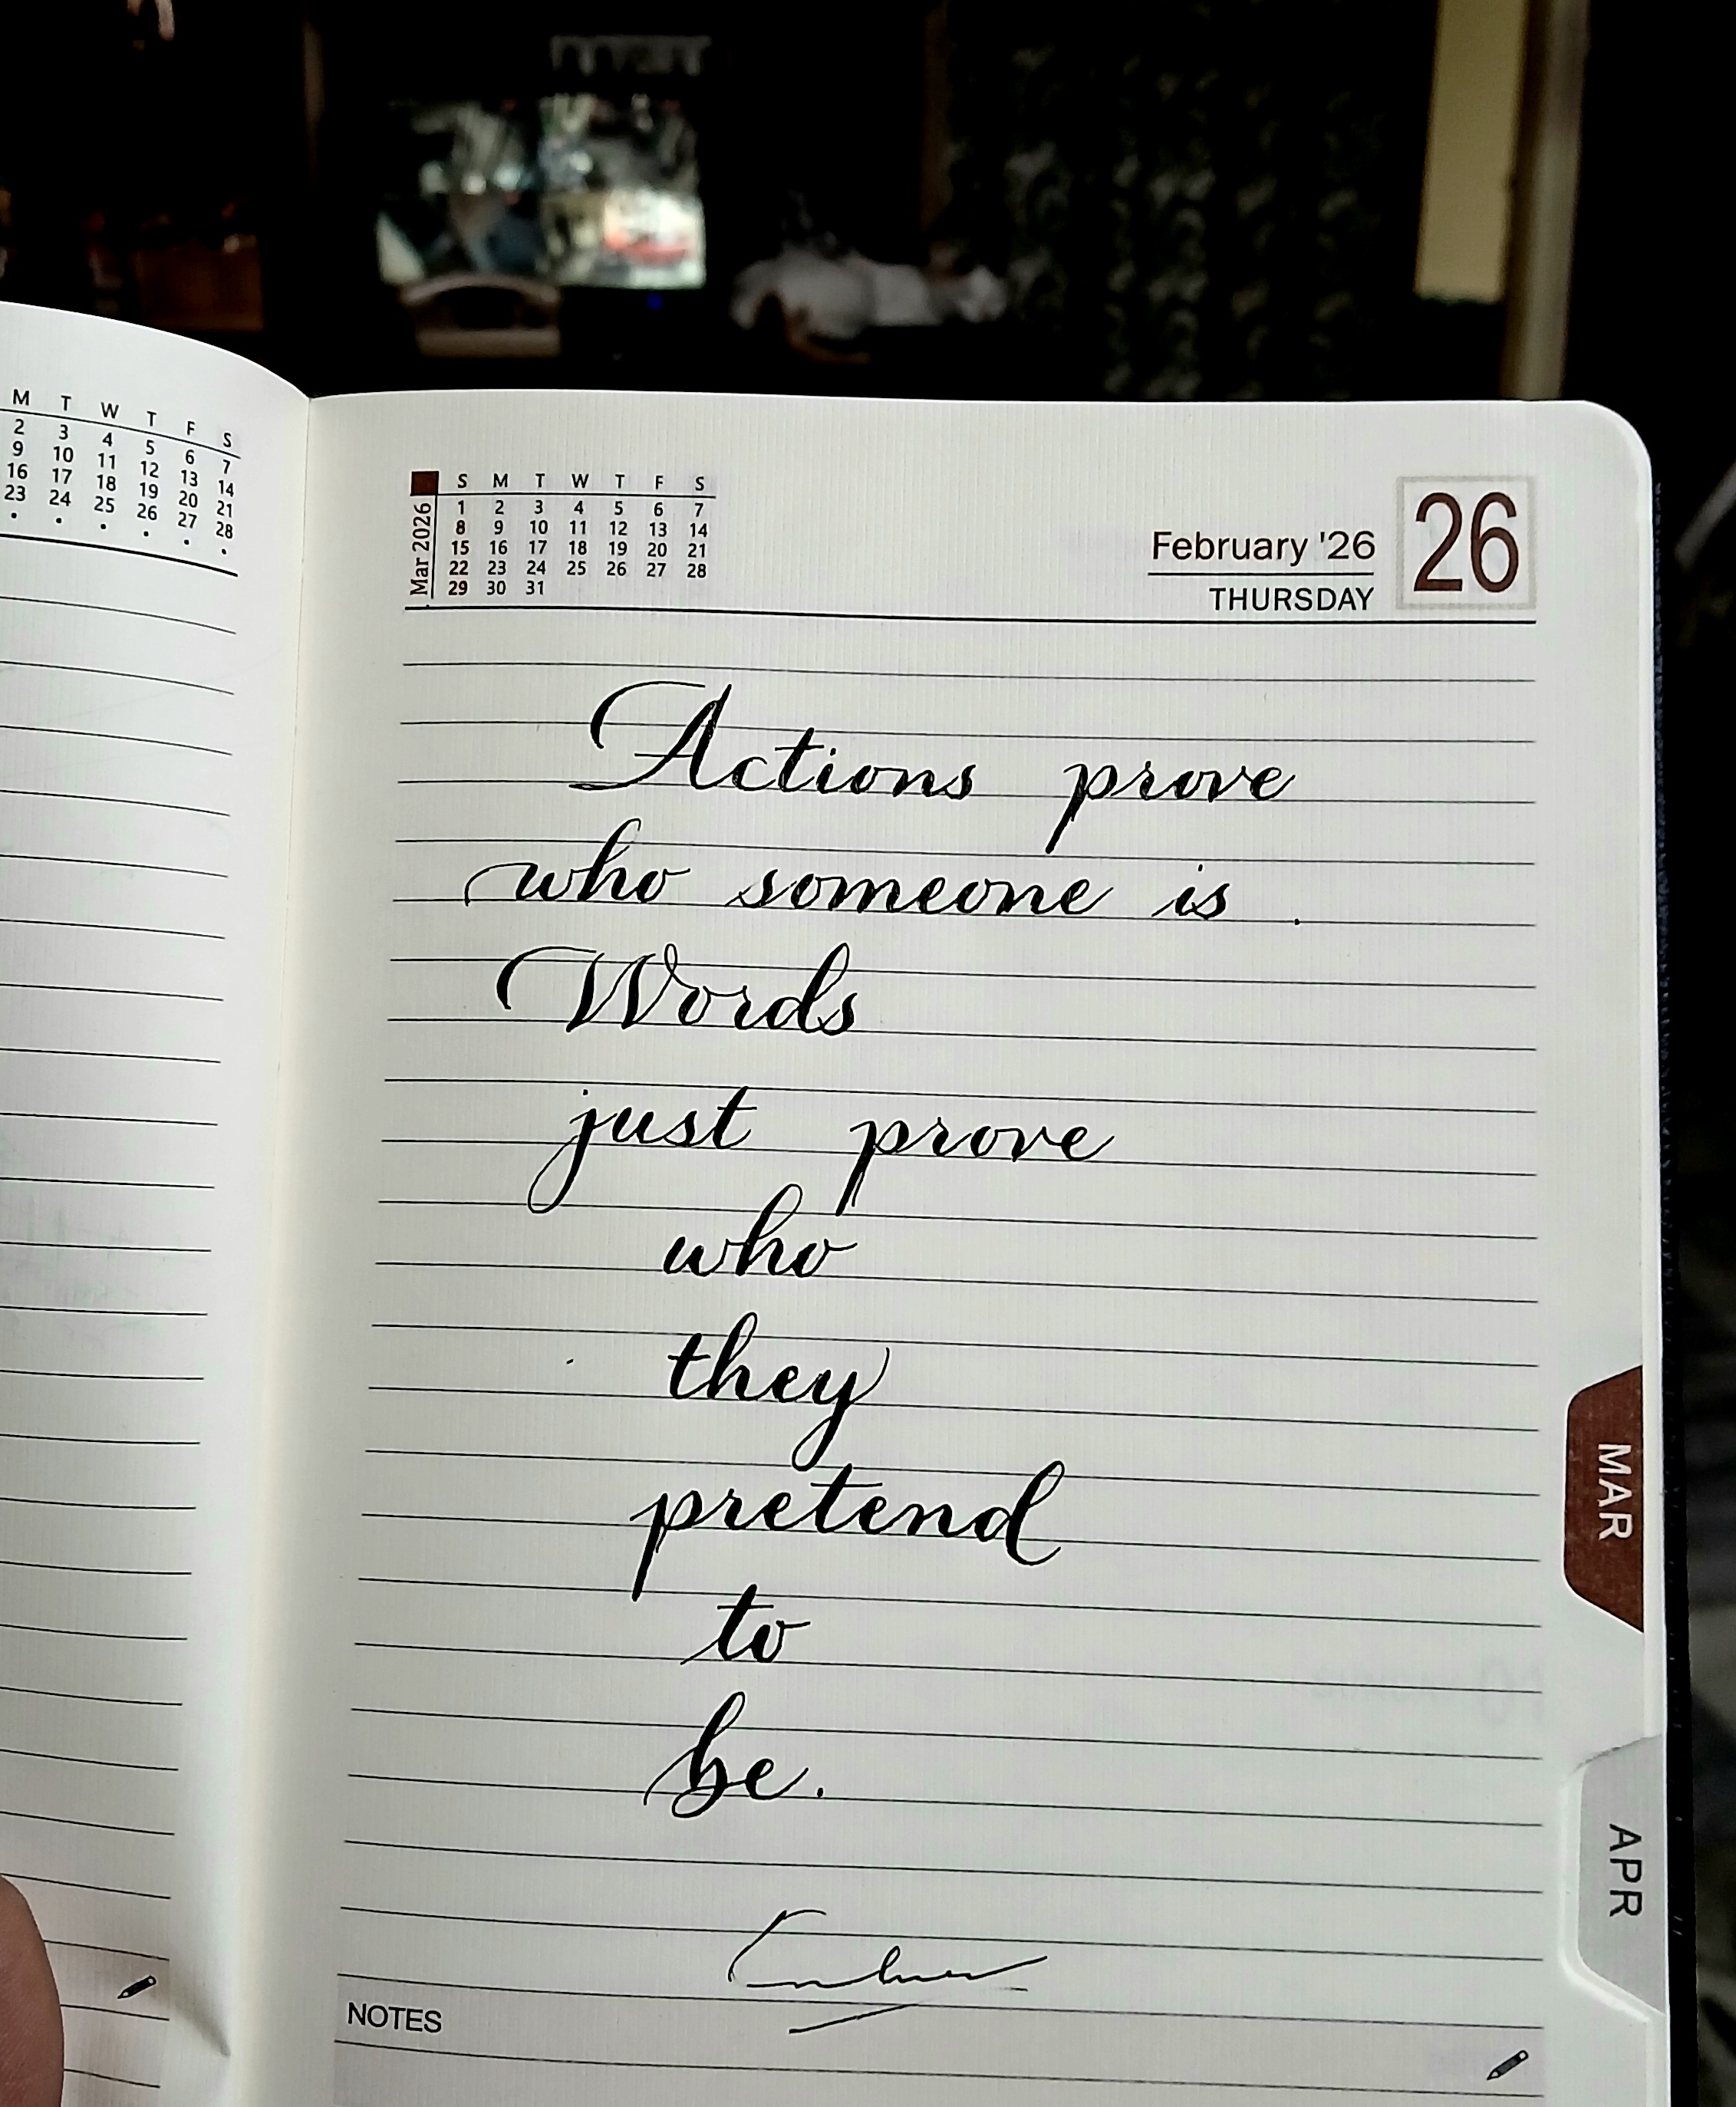 M T W T F S
2 3 4 5 6 7
9 10 11 12 13 14
16 17 18 19 20 21
23 24 25 26 27 28
Mar 2026
S M T W T F S
1 2 3 4 5 6 7
8 9 10 11 12 13 14
15 16 17 18 19 20 21
22 23 24 25 26 27 28
29 30 31
February '26
THURSDAY
26
Actions prove
who someone is .
Words
just prove
who
they
pretend
to
be.
NOTES
MAR
APR